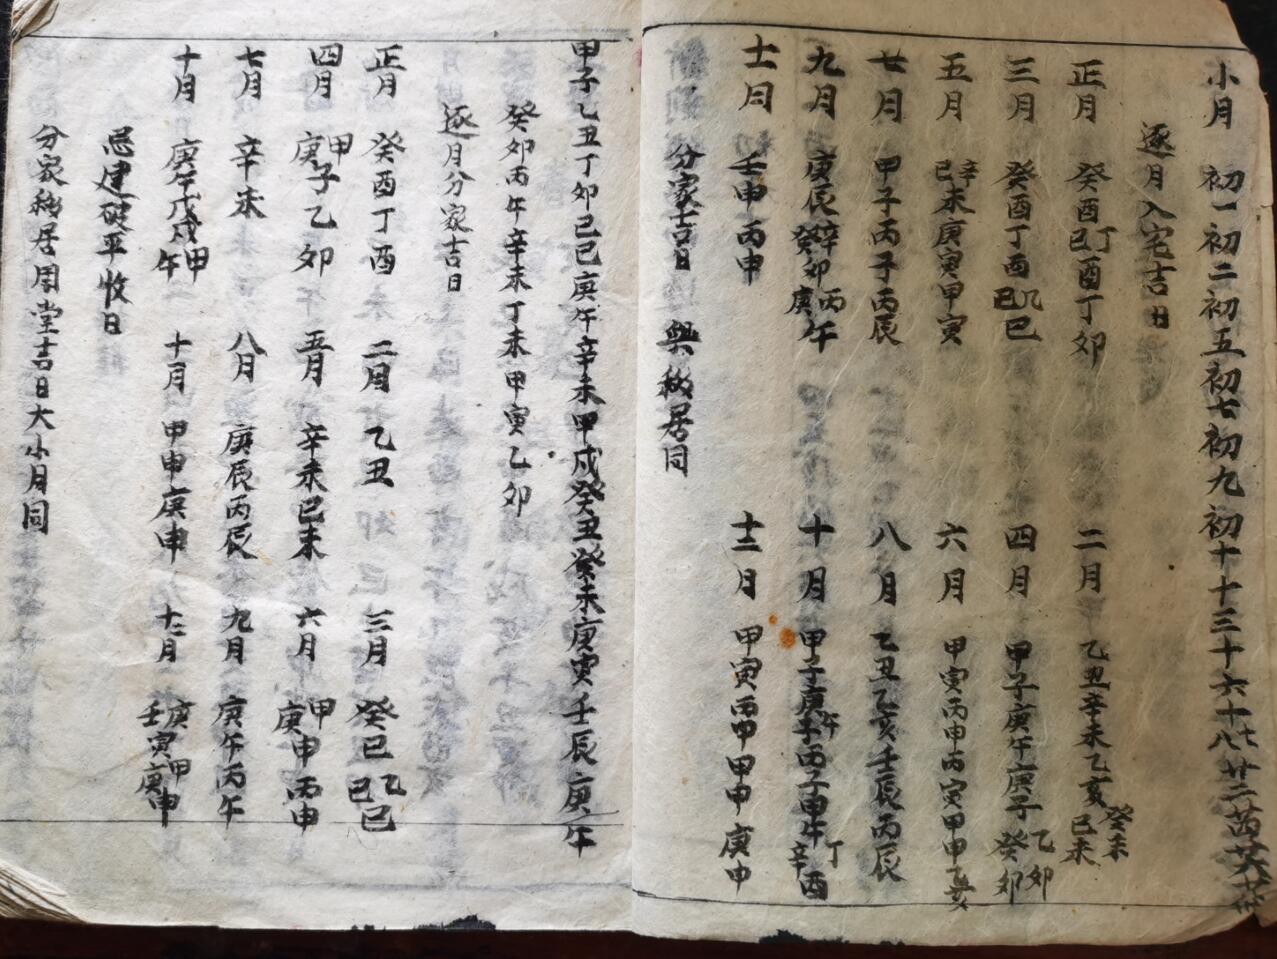 小月 初一初二初五初七初九初十十三十六十七十八廿二
逐月入宅吉日
正月 癸酉丁酉己酉丁卯 二月 乙丑辛未乙亥癸未己未
三月 癸酉丁酉乙巳己巳 四月 甲子庚午庚子乙卯癸卯
五月 辛未己未庚寅甲寅 六月 甲寅丙申丙寅甲申乙亥
七月 甲子丙子丙辰 八月 乙丑乙亥壬辰丙辰
九月 庚辰辛卯癸卯丙午庚午 十月 甲子庚午庚子丙子甲午丁酉辛酉
十一月 壬申丙申 十二月 甲寅丙申甲申庚申
分家吉日 與 居同
甲子乙丑丁卯己巳庚午辛未甲戌癸丑癸未庚寅壬辰庚午
癸卯丙午辛未丁未甲寅乙卯
逐月分家吉日
正月 癸酉丁酉 二月 乙丑 三月 癸巳乙巳己巳
四月 甲子庚子乙卯 五月 辛未己未 六月 甲申庚申丙申
七月 辛未 八月 庚辰丙辰 九月 庚午丙午
十月 庚午戊戌甲午 十一月 甲申庚申 十二月 庚寅壬寅甲申庚申
忌建破平收日
分家 居周堂吉日大小月同